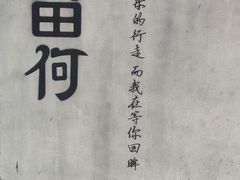 何
的行走 而我在等你回眸